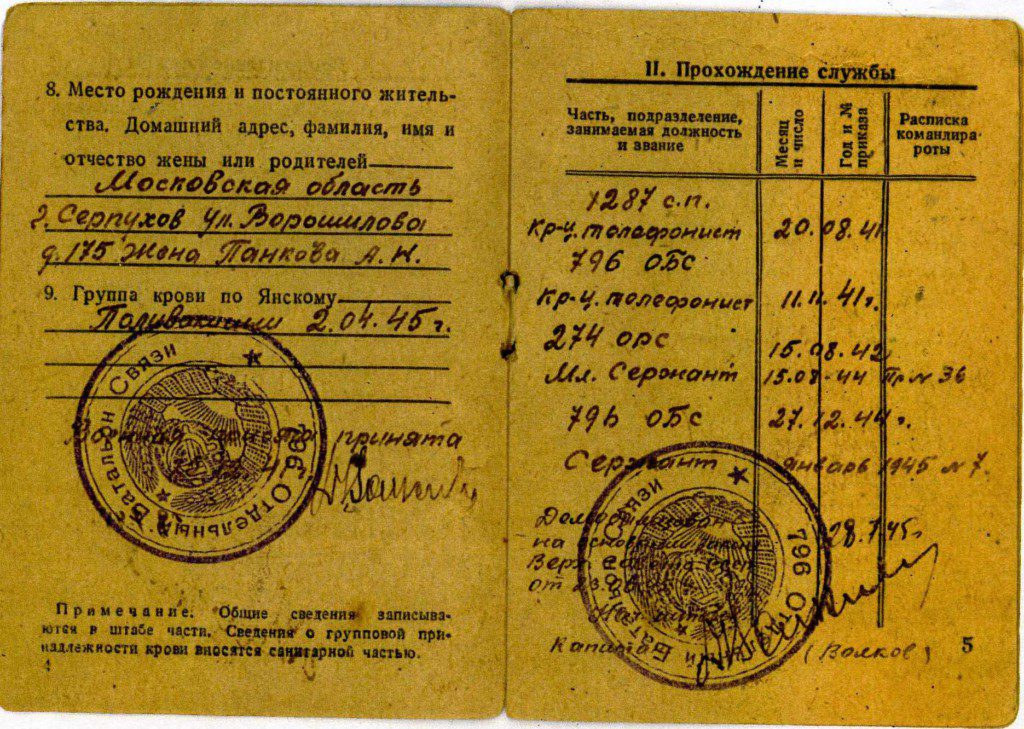 8. Место рождения и постоянного житель-
ства. Домашний адрес, фамилия, имя и
отчество жены или родителей
Московская область
г. Серпухов ул. Ворошилова
д. 175 Жена Панкова А. Н.
9. Группа крови по Янскому
2.04.45г.
Военная присяга принята
796 Отдельный Батальон Связи
Примечание. Общие сведения записыва-
ются в штабе части. Сведения о групповой при-
надлежности крови вносятся санитарной частью.
4
II. Прохождение службы
Часть, подразделение,
занимаемая должность
и звание
Месяц
и число
Год и №
приказа
Расписка
командира
роты
1287 с.п.
кр-ц. телефонист 20.08.41
796 ОБС
кр-ц. телефонист 11.11.41г.
274 орс 15.08.42
Мл. Сержант 15.08.44 Пр № 36
796 ОБС 27.12.44г.
Сержант январь 1945 №7.
Демобилизован 28.7.45г
на основании
Верх. Совета СССР
от 23.
Капитан (Волков)
796 Отдельный Батальон Связи
5